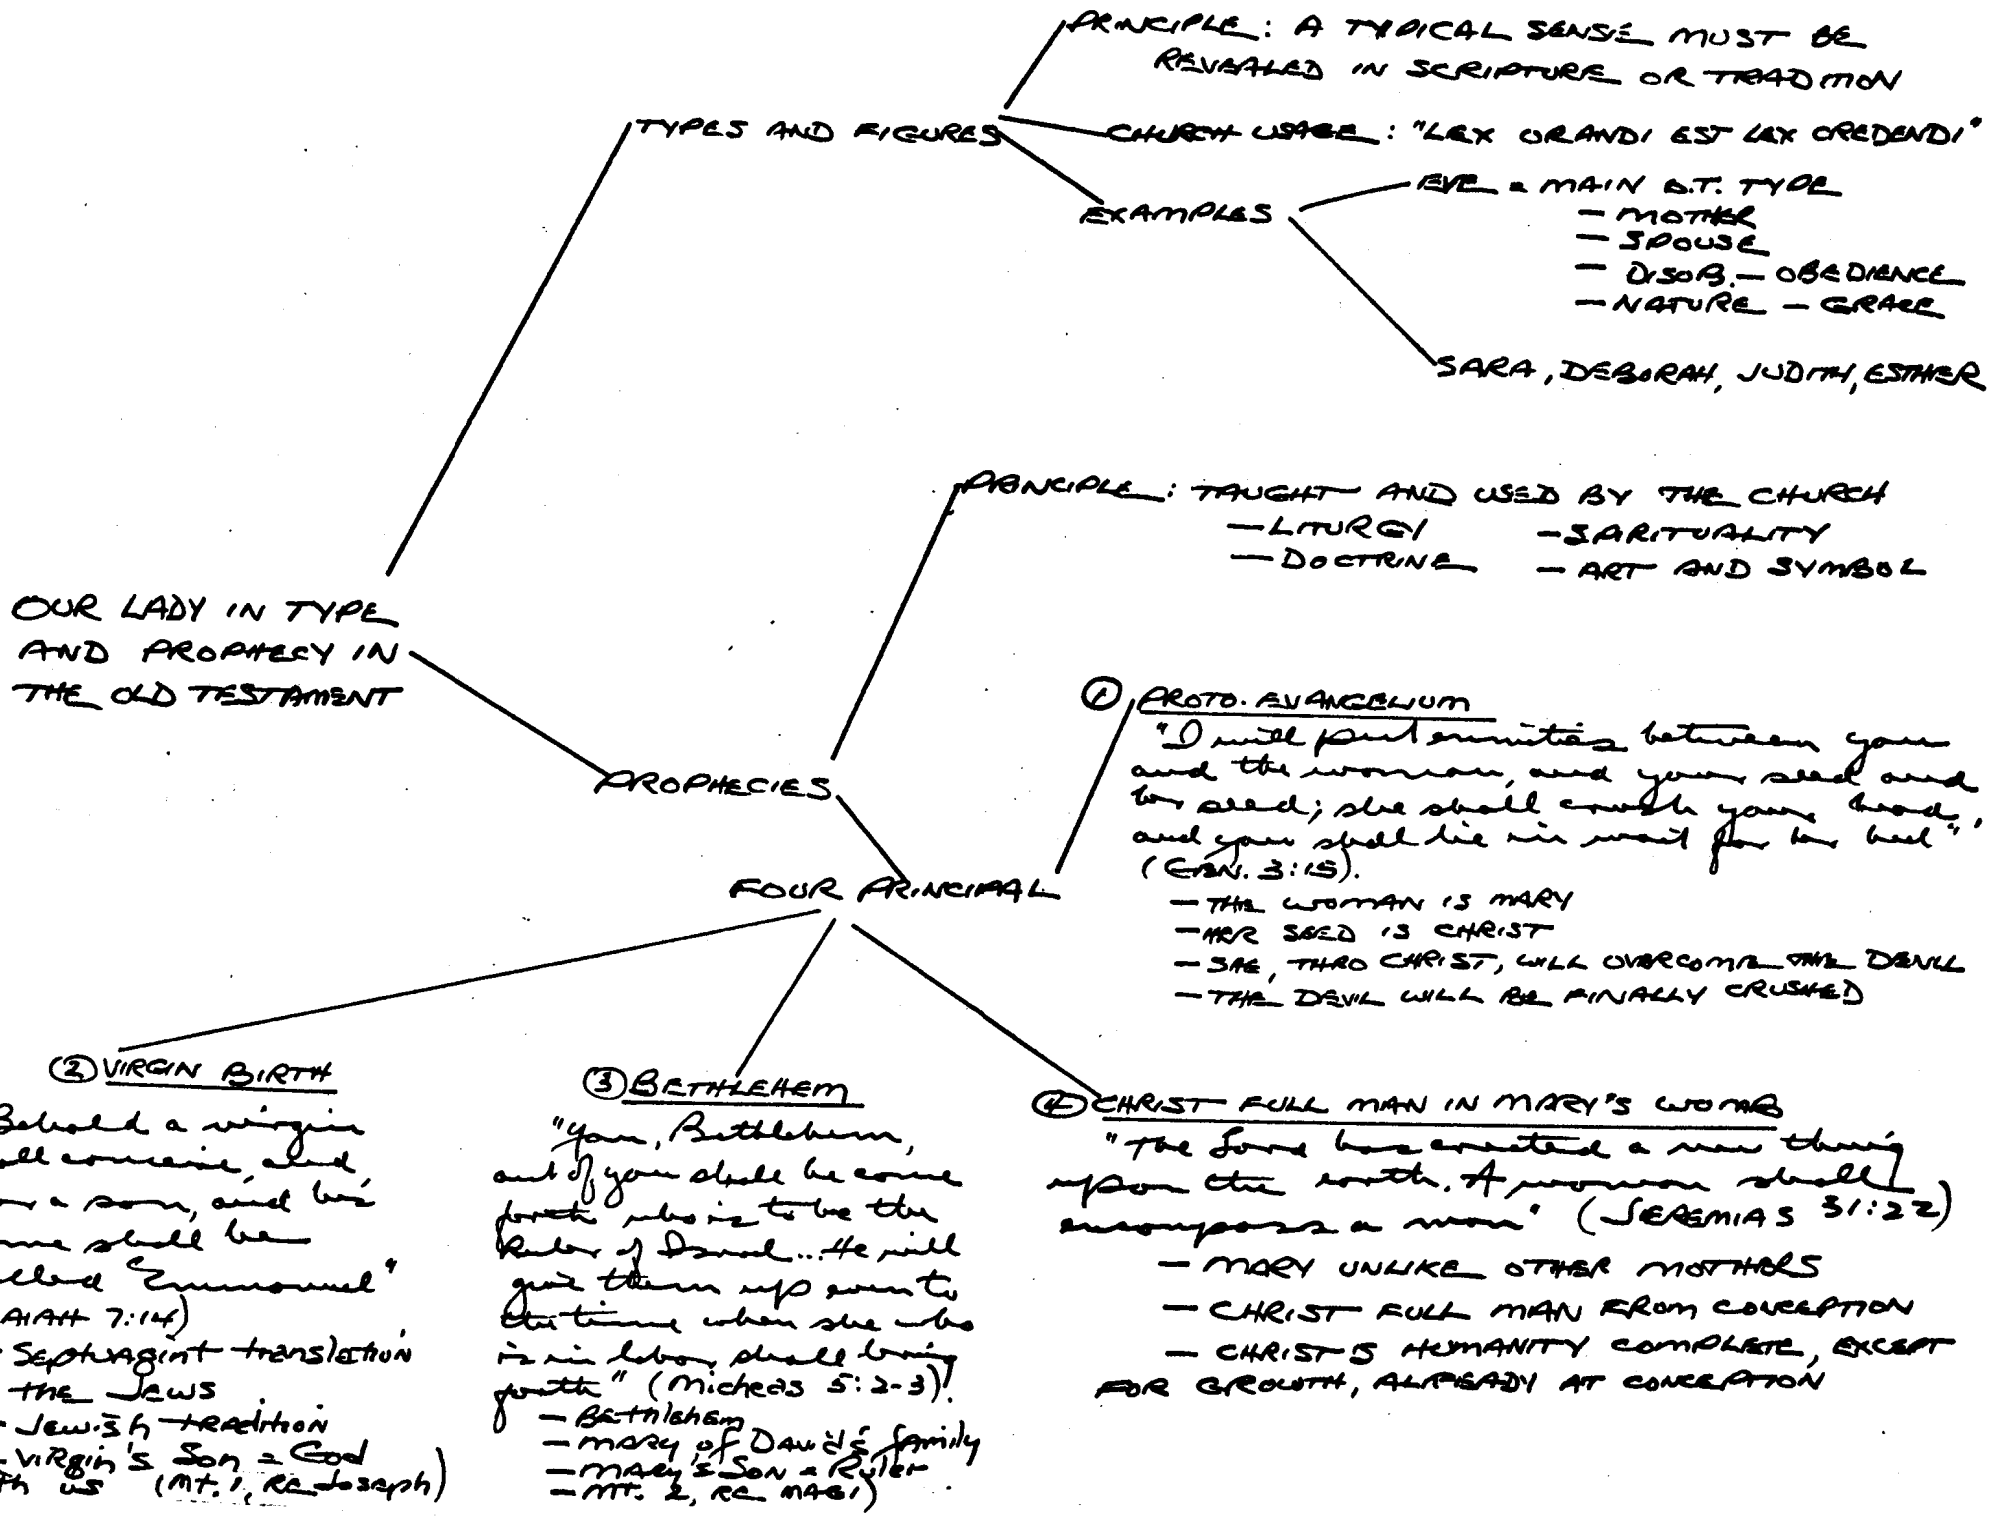 PRINCIPLE: A TYPICAL SENSE MUST BE
REVEALED IN SCRIPTURE OR TRADITION
TYPES AND FIGURES
CHURCH USAGE: "LEX ORANDI EST LEX CREDENDI"
EXAMPLES
EVE = MAIN O.T. TYPE
- MOTHER
- SPOUSE
- DISOB. - OBEDIENCE
- NATURE - GRACE
SARA, DEBORAH, JUDITH, ESTHER
OUR LADY IN TYPE
AND PROPHECY IN
THE OLD TESTAMENT
PRINCIPLE: TAUGHT AND USED BY THE CHURCH
- LITURGY - SPIRITUALITY
- DOCTRINE - ART AND SYMBOL
PROPHECIES
FOUR PRINCIPAL
① PROTO-EVANGELIUM
"I will put enmities between you
and the woman, and your seed and
her seed; she shall crush your head,
and you shall lie in wait for her heel"
(GEN. 3:15).
- THE WOMAN IS MARY
- HER SEED IS CHRIST
- SHE, THRO CHRIST, WILL OVERCOME THE DEVIL
- THE DEVIL WILL BE FINALLY CRUSHED
② VIRGIN BIRTH
Behold a virgin
all conceive, and
r a son, and his
me shall be
lled "Emmanuel"
AIAH 7:14)
- Septuagint translation
the Jews
- Jewish tradition
- Virgin's Son = God
th us (Mt. 1, re Joseph)
③ BETHLEHEM
"You, Bethlehem,
out of you shall he come
forth who is to be the
Ruler of Israel... He will
give them up even to
the time when she who
is in labor, shall bring
forth" (Micheas 5:2-3).
- Bethlehem
- Mary of David's family
- Mary's Son = Ruler
- Mt. 2, re MAGI)
④ CHRIST FULL MAN IN MARY'S WOMB
"The Lord has created a new thing
upon the earth. A woman shall
encompass a man" (JEREMIAS 31:22)
- MARY UNLIKE OTHER MOTHERS
- CHRIST FULL MAN FROM CONCEPTION
- CHRIST'S HUMANITY COMPLETE, EXCEPT
FOR GROWTH, ALREADY AT CONCEPTION